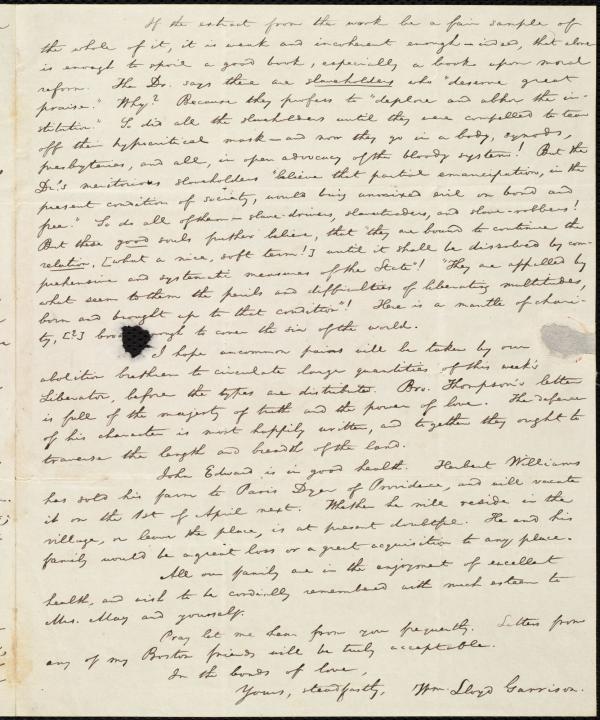 If the extract from the work be a fair sample of
the whole of it, it is weak and incoherent enough—indeed, that alone
is enough to spoil a good book, especially a book upon moral
reform. The Dr. says there are slaveholders who "deserve great
praise." Why? Because they profess to "deplore and abhor the in-
stitution." So did all the slaveholders until they were compelled to tear
off their hypocritical mask—and now they go in a body, synods,
presbyteries, and all, in open advocacy of the bloody system! But the
Dr.'s meritorious slaveholders "believe that partial emancipation, in the
present condition of society, would bring unmixed evil on bond and
free." So do all of them—slave-drivers, slavetraders, and slave-robbers!
But these good souls further believe, that "they are bound to continue the
relation, [what a nice, soft term!] until it shall be dissolved by com-
prehensive and systematic measures of the State"! "They are appalled by
what seem to them the perils and difficulties of liberating multitudes,
born and brought up to that condition"! Here is a mantle of chari-
ty, [?] to cover the sin of the world.
I hope uncommon pains will be taken by our
abolition brethren to circulate large quantities of this week's
Liberator, before the types are distributed. Bro. Thompson's letter
is full of the majesty of truth and the power of love. The defence
of his character is most happily written, and together they ought to
traverse the length and breadth of the land.
John Edward is in good health. Herbert Williams
has sold his farm to Paris Dyer of Providence, and will vacate
it on the 1st of April next. Whether he will reside in the
village, or leave the place, is at present doubtful. He and his
family would be a great loss or a great acquisition to any place.
All our family are in the enjoyment of excellent
health, and wish to be cordially remembered with much esteem to
Mrs. May and yourself.
Pray let me hear from you frequently. Letters from
any of my Boston friends will be truly acceptable.
In the bonds of love,
Yours, steadfastly, Wm. Lloyd Garrison.